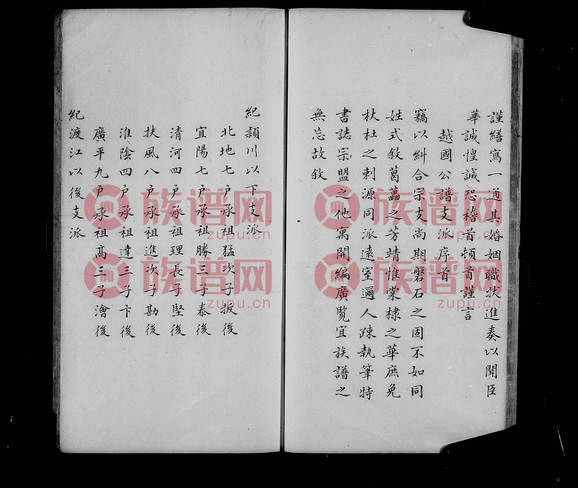 謹繕寫一通具婚姻職狀進奏以聞臣
華誠惶誠恐稽首頓首謹言
越國公譜支派序首
竊以糾合宗支尚期磐石之固不如同
姓式敘葛藟之芳靖惟棠棣之華庶免
杕杜之刺源同派遠室邇人疎執筆特
書誌宗盟之他寓開編廣覽宜族譜之
無忘故敘
紀潁川以下支派
北地七戶承祖猛次子扳後
宜陽七戶承祖勝三子泰後
清河四戶承祖理長子堅後
扶風八戶承祖進次子勘後
淮陰四戶承祖達三子卞後
廣平九戶承祖高三子澮後
紀渡江以後支派
族谱网 族谱网
zupu.cn zupu.cn
族谱网 族谱网
zupu.cn zupu.cn